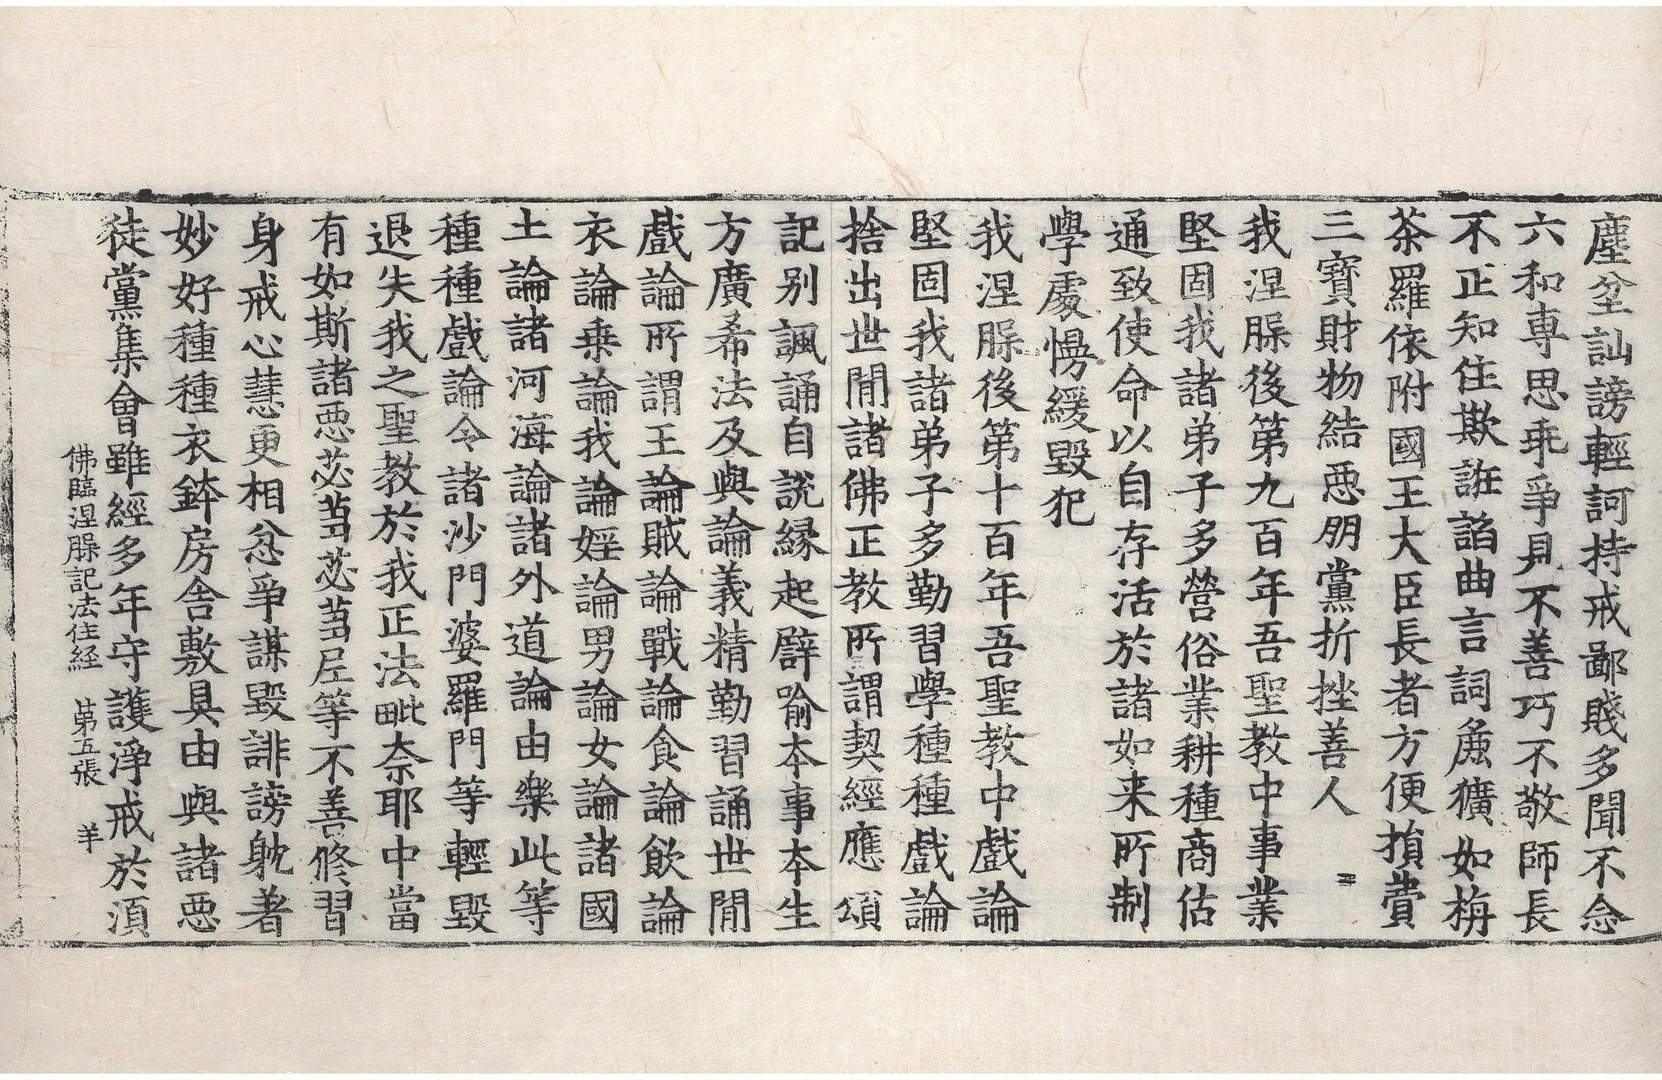 塵坌訕謗輕訶持戒鄙賤多聞不念
六和専思乖爭具不善巧不敬師長
不正知住欺誑諂曲言詞麁獷如旃
茶羅依附國王大臣長者方便損費
三寶財物結惡朋黨折挫善人
我涅槃後第九百年吾聖教中事業
堅固我諸弟子多營俗業耕種商估
通致使命以自存活於諸如来所制
學處慢緩毀犯
我涅槃後第十百年吾聖教中戲論
堅固我諸弟子多勤習學種種戲論
捨出世閒諸佛正教所謂契經應頌
記别諷誦自説縁起譬喻本事本生
方廣希法及與論義精勤習誦世閒
戲論所謂王論賊論戰論食論飲論
衣論乗論我論婬論男論女論諸國
土論諸河海論諸外道論由樂此等
種種戲論令諸沙門婆羅門等輕毀
退失我之聖教於我正法毗奈耶中當
有如斯諸惡苾芻苾芻尼等不善修習
身戒心慧更相忿爭謀毀誹謗躭著
妙好種種衣鉢房舎敷具由與諸惡
徒黨集會雖經多年守護淨戒於湏
佛臨涅槃記法住経 第五張 羊